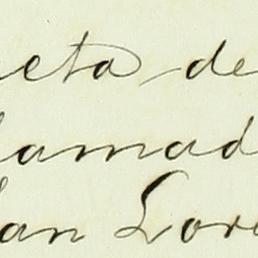 eta de
lamad
an Lore